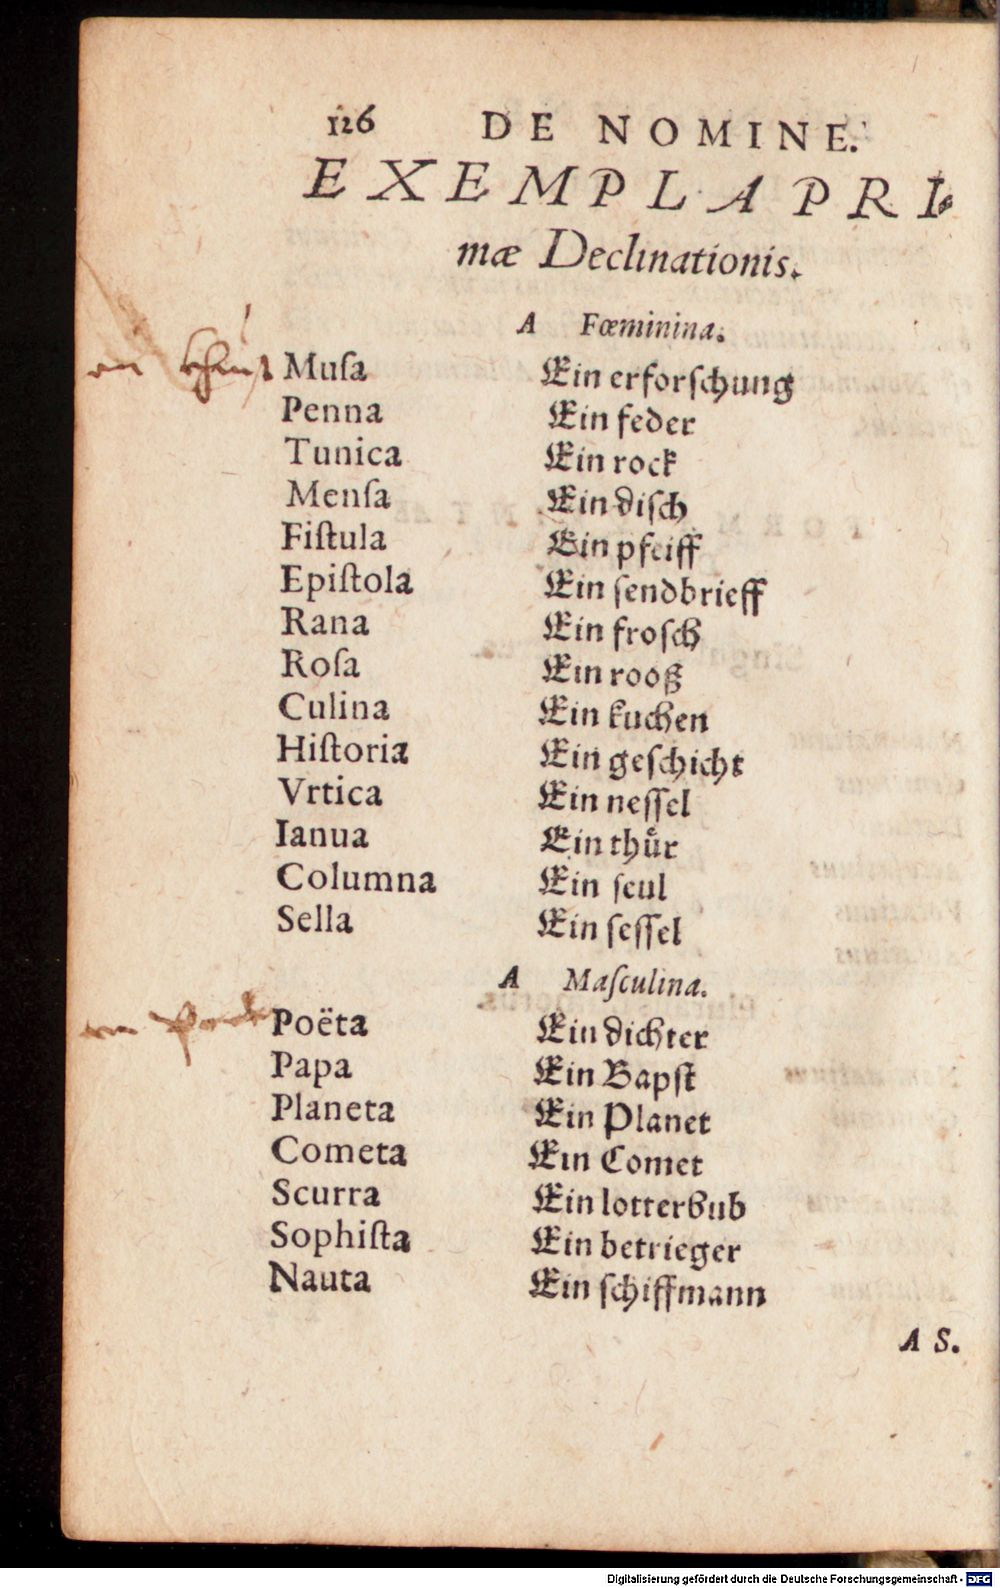 126 DE NOMINE.
EXEMPLA PRI-
mæ Declinationis.
A Fœminina.
Muſa Ein erforſchung
Penna Ein feder
Tunica Ein rock
Menſa Ein diſch
Fiſtula Ein pfeiff
Epiſtola Ein ſendbrieff
Rana Ein froſch
Roſa Ein rooß
Culina Ein kuchen
Hiſtoria Ein geſchicht
Vrtica Ein neſſel
Ianua Ein thuͤr
Columna Ein ſeul
Sella Ein ſeſſel
A Maſculina.
Poëta Ein dichter
Papa Ein Bapſt
Planeta Ein Planet
Cometa Ein Comet
Scurra Ein lotterbub
Sophiſta Ein betrieger
Nauta Ein ſchiffmann
A S.
Digitalisierung gefördert durch die Deutsche Forschungsgemeinschaft - DFG